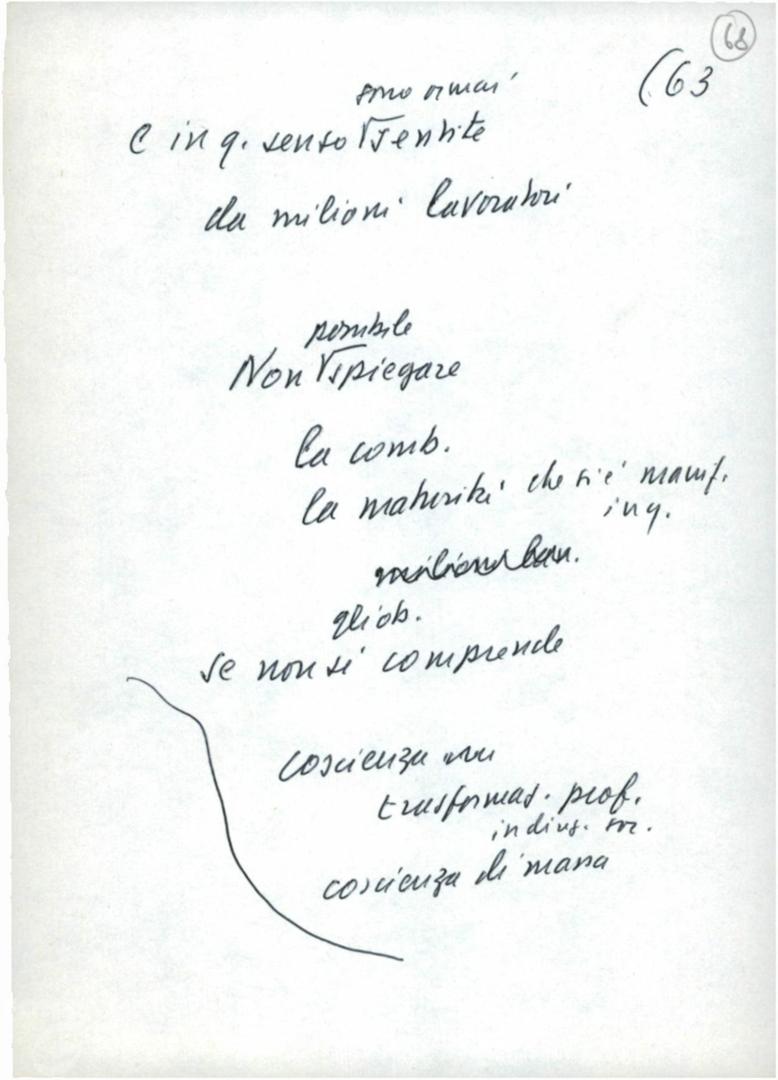 68
(63
sono ormai
e in q. senso sentite
da milioni lavoratori
possibile
Non spiegare
la comb.
la maturità che si è manif.
in q.
gli ob.
se non si comprende
coscienza
trasformaz. prof.
coscienza di massa